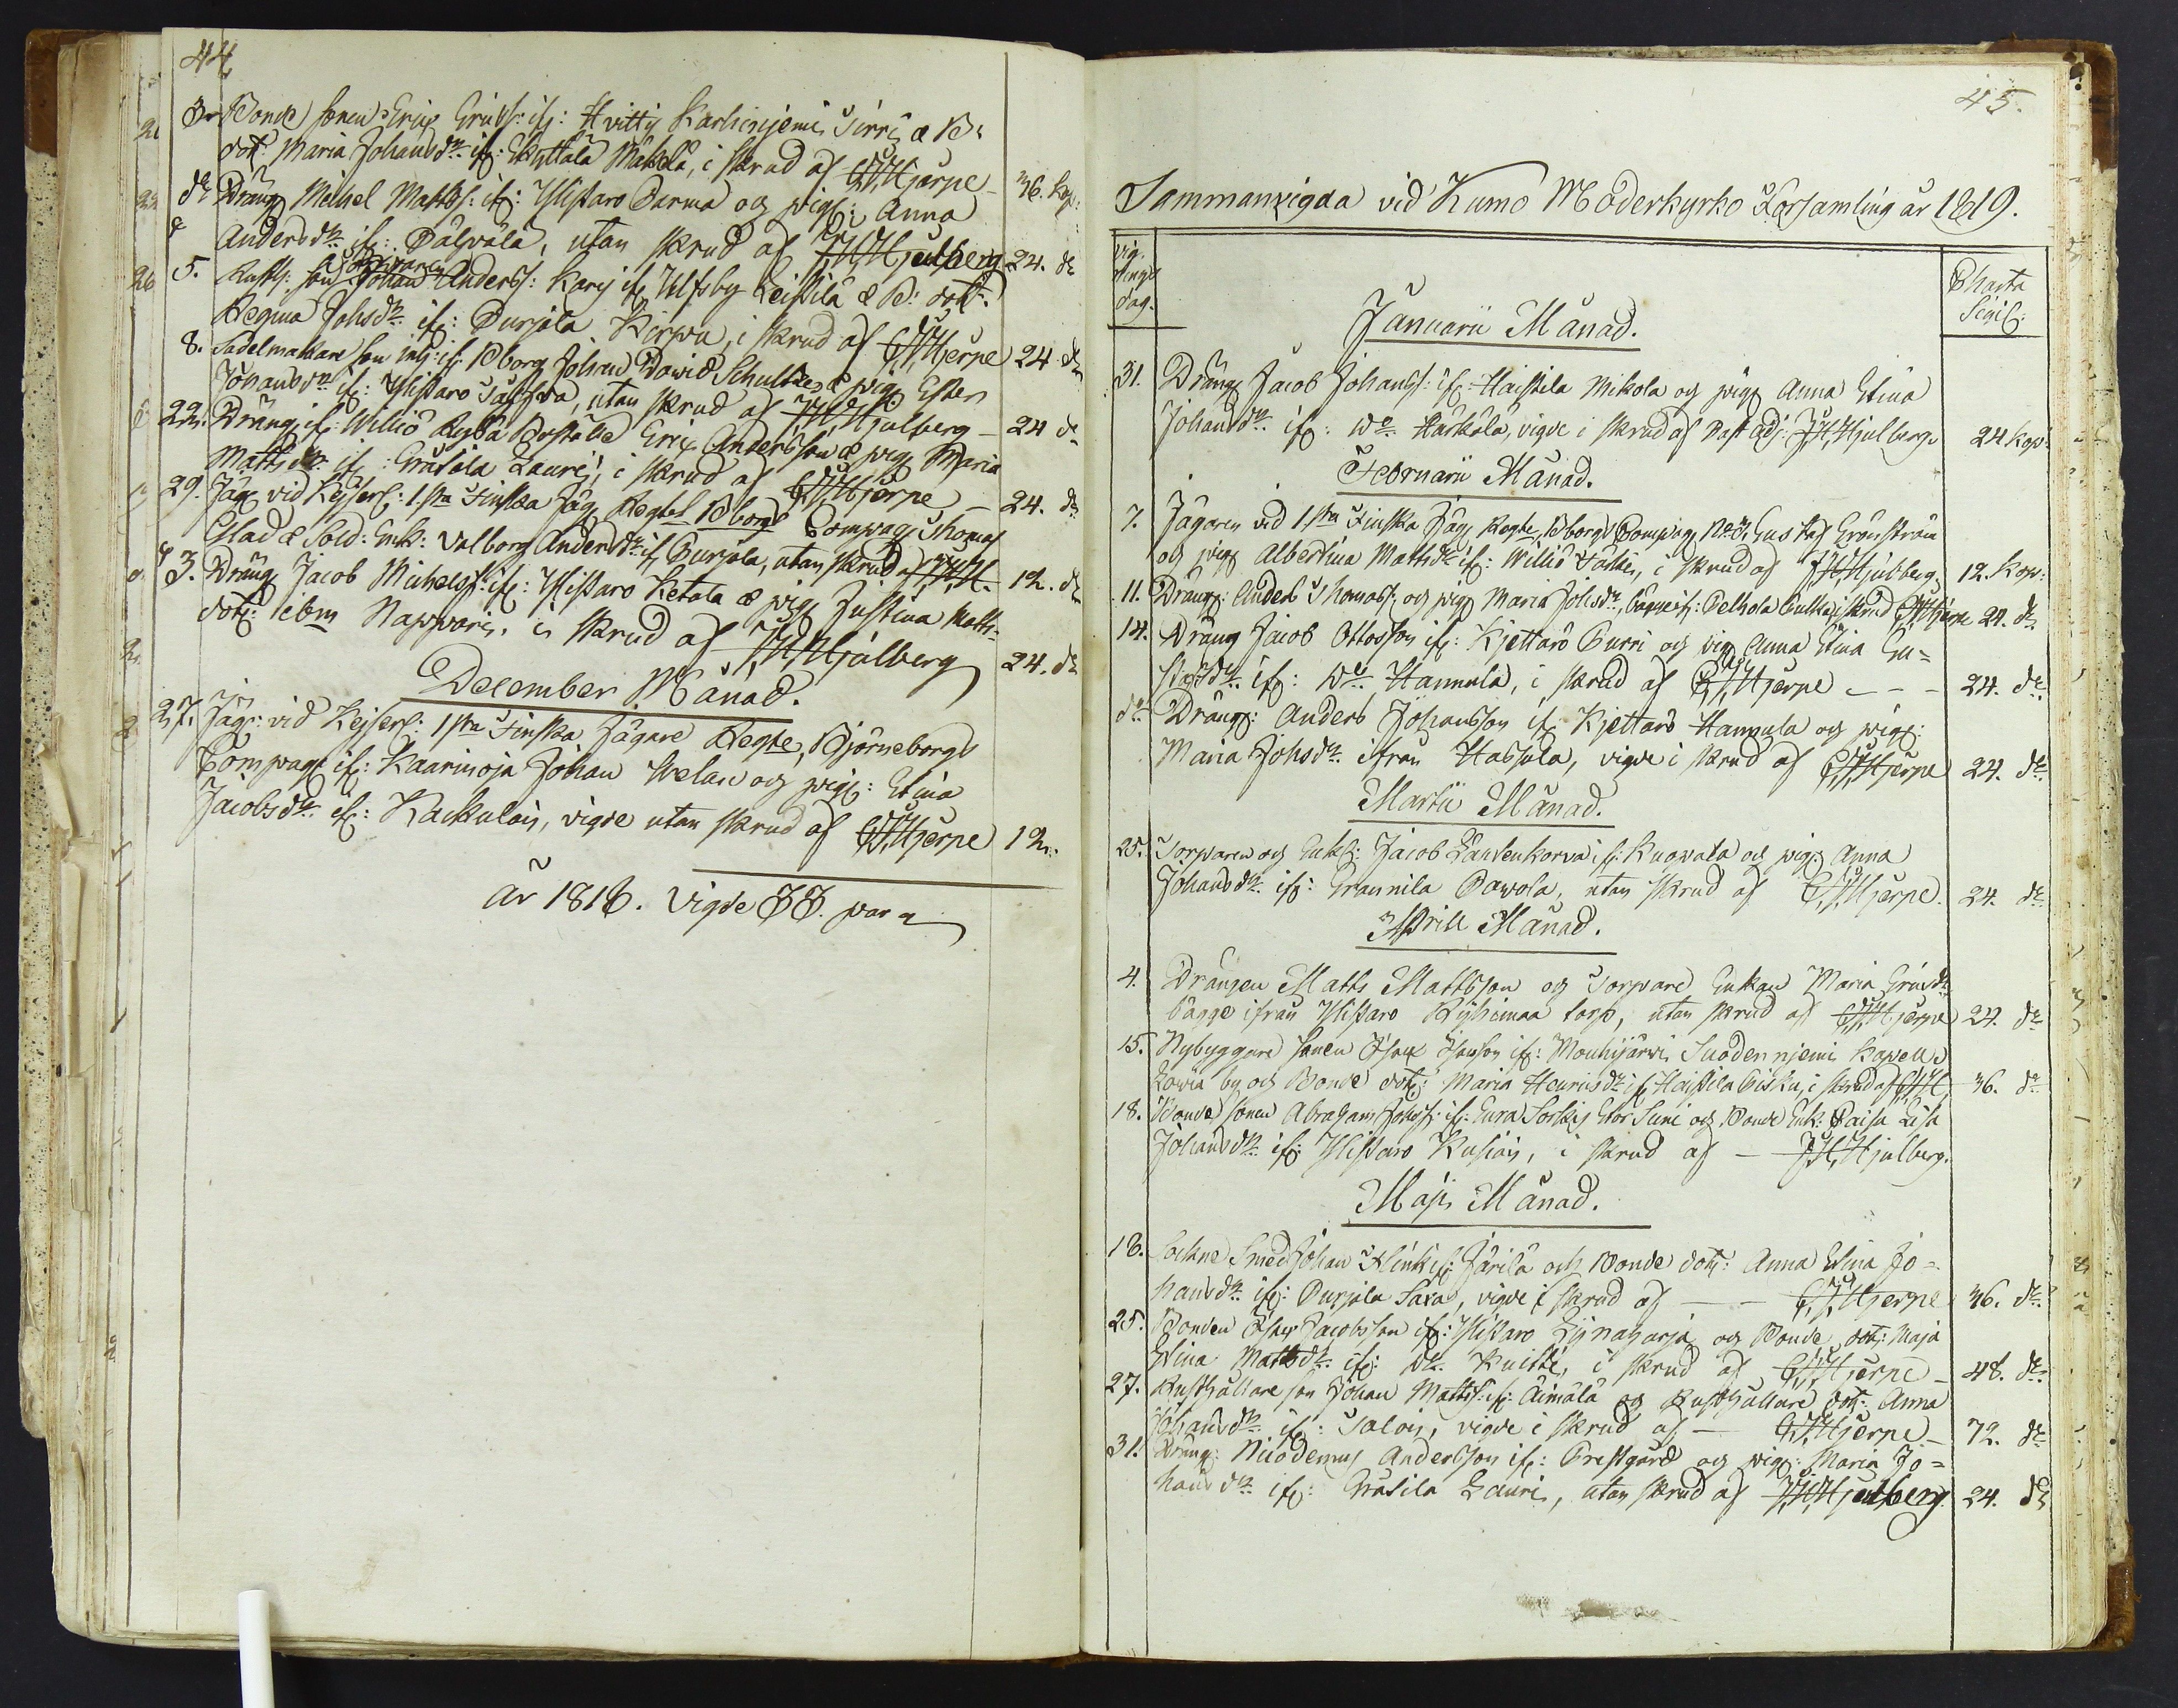 44
Bonde sonen Eric Ericss: if: Hvittis Karhiniemi Sirri & B:
dott: Maria Johansdr. if: Skyttälä Mäkelä, i skrud af GJHjerpe 36. kop:
dr Dräng Michel Mattss: if: Ylistaro Parma og pig: Anna
Andersdr. if: Pälpälä, utan skrud af JHHjulberg 24. dr
5. Rusth: son Johan Anderss: Karj if Ulfsby Leistilä & B: dott:
Regina Johsdr. if: Purjala Kirpu, i skrud af GJHjerpe 24 dr
8. Sadelmakare son inh: if: Bborg Johan David Schultz & pig Ester
Johansdr. if: Ylistaro Sächä, utan skrud af JHHjulberg 24 dr
22. Dräng if: Williö Ryssä Boställe Eric Andersson & pig Maria
Mattsdr. if: Gräsila Lauri, i skrud af GJHjerpe 24. dr
29. Jäg: vid Kejserl: 1.sta Finska Jäg: Regtet Bborgs Compag: Thomas
Glad & Sold: Enk: Valborg Andersdr if Purjala, utan skrud af JHH. 12. dr
3. Dräng Jacob Michelss: if: Ylistaro Ketala & pig Justina Matts-
dott: ibm Nappari, i skrud af JHHjulberg 24. dr
December Månad.
27. Jäg: vid Kejserl: 1sta Finska Jägare Regte, Björneborgs
Compag: if: Kaarinoja Johan Welan og pig: Stina
Jacobsdr. if: Kackulais, vigde utan skrud af GJHjerpe 12.
År 1818. Vigde 33. par
45.
Sammanvigda vid Kumo Moderkyrko Församling år 1819.
Vig-
nings
dag.
Charta
Sigil:
Januarii Månad.
31. Dräng Jacob Johanss: if: Haistila Mikola og pig Anna Stina
Johansdr. if: dr. Härkälä, vigde i skrud af Past: Adj: JHHjulberg 24 kop:
Februarii Månad.
7. Jägaren vid 1.sta Finska Jäg: Regte, Bborgs Compag: Gustaf Grönström
og pig Albertina Mattsdr if: Williö, i skrud af JHHjulberg 12. kop:
11. Dräng: Anders Thomass: og pig Maria Johsdr, bägge if: Pelhola i skrud GJHjerpe 24. dr
14. Dräng Jacob Ottosson if: Kjettarö Purri og pig Anna Stina Gu-
stafsdr. if: dr. Hannula, i skrud af GJHjerpe 24. dr.
dr. Dräng: Anders Johansson if: Kjettarö Hannula og pig:
Maria Johsdr. ifrån Hassala, vigde i skrud af GJHjerpe 24. dr.
Martii Månad.
25. Torparen og Enkl: Jacob Lantenkorva if: Kuovala og pig: Anna
Johansdr. if: Krannila Pavola, utan skrud af GJHjerpe. 24. dr.
Aprill Månad.
4. Drängen Matts Mattsson og Torpare Enkan Maria Ericsdr
bägge ifrån Ylistaro Ryhimaa torp, utan skrud af GJHjerpe 24. dr
15. Nybyggare sonen Isac Isacsson if: Mouhijärvi Suodenniemi Kapell:
by og Bonde dott: Maria Henricsdr if Haistila Pisku, i skrud af GJH 36. dr
18. Bonde sonen Abraham Johss: if: Eura Sorkis Stor Simi og Bonde Enk: Caisa Lisa
Johansdr. if: Ylistaro Kusiais, i skrud af JHHjulberg.
Maji Månad.
18. Sockne Smed Johan Flink if: Järilä och Bonde dott: Anna Stina Jo-
hansdr. if: Purjala Saxa, vigde i skrud af GJHjerpe 36. dr.
25. Bonden Isac Jacobsson if: Ylistaro Lynaharja og Bonde dott: Maja
Stina Mattsdr. if: dr. Knitti, i skrud af GJHjerpe 48. dr.
27. Rusthållare son Johan Mattss: if: Äimälä og Rusthållare dott: Anna
Johansdr. if: Talois, vigde i skrud af GJHjerpe 72. dr
31. Dräng: Nicodemus Andersson if: Prestgård og pig: Maria Jo-
hansdr. if: Gräsila Lauri, utan skrud af JHHjulberg 24. dr